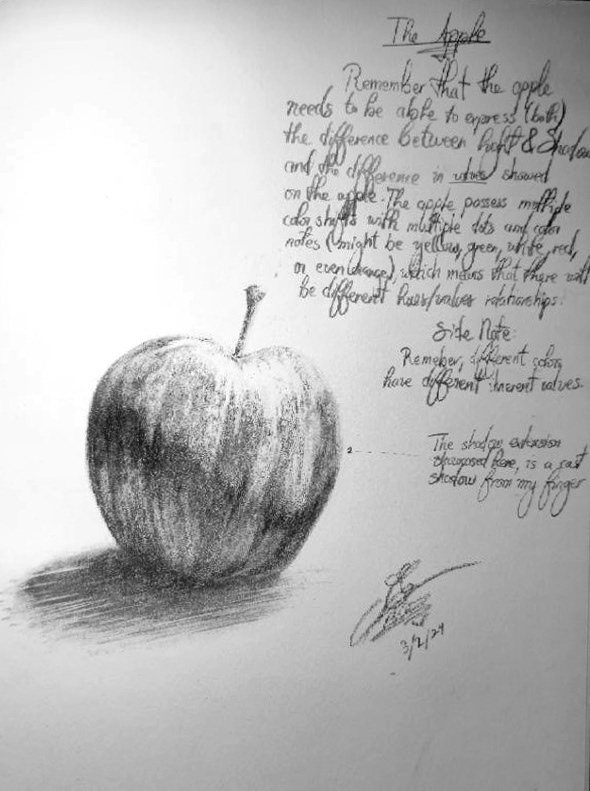 The Apple
Remember that the apple
needs to be able to express (both)
the difference between light & Shadow
and the difference in values showed
on the apple. The apple possess multiple
color shifts with multiple dots and color
notes (might be yellow, green, white, red,
or even orange), which means that there will
be different hues/values relationships.
Side Note:
Remeber, different colors
have different inherent values.
2
The shadow extension
showcased here, is a cast
shadow from my finger
3/2/24